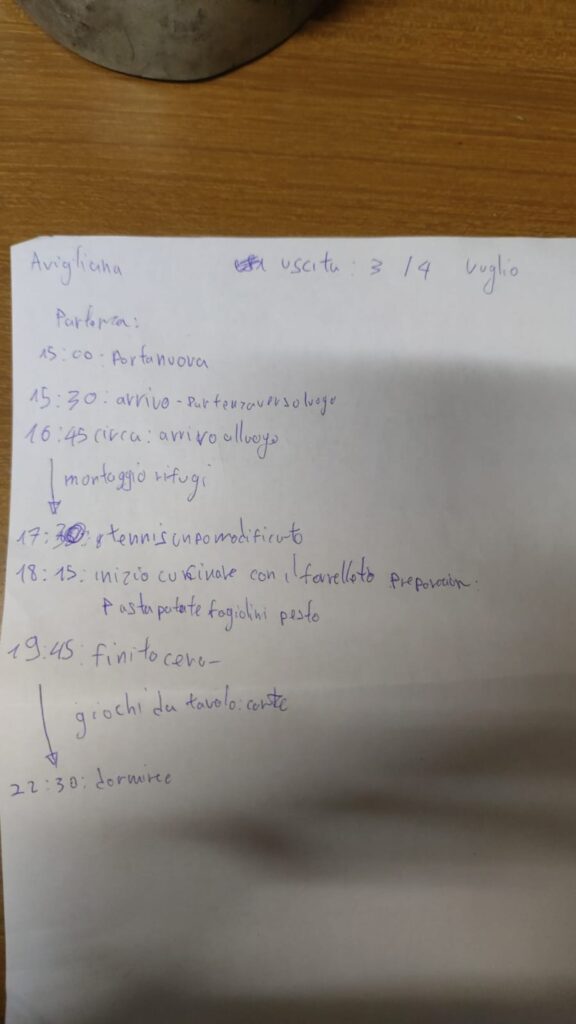 Avigliana uscita: 3 / 4 luglio
Partenza:
15:00: Portanuova
15:30: arrivo - Partenza verso luogo
16:45 circa: arrivo al luogo
montaggio rifugi
17:30: tennis capo modificato
18:15: inizio cucinare con il fornelletto preparazion:
Pasta patate fagiolini pesto
19:45: finito cena -
giochi da tavolo: carte
22:30: dormire